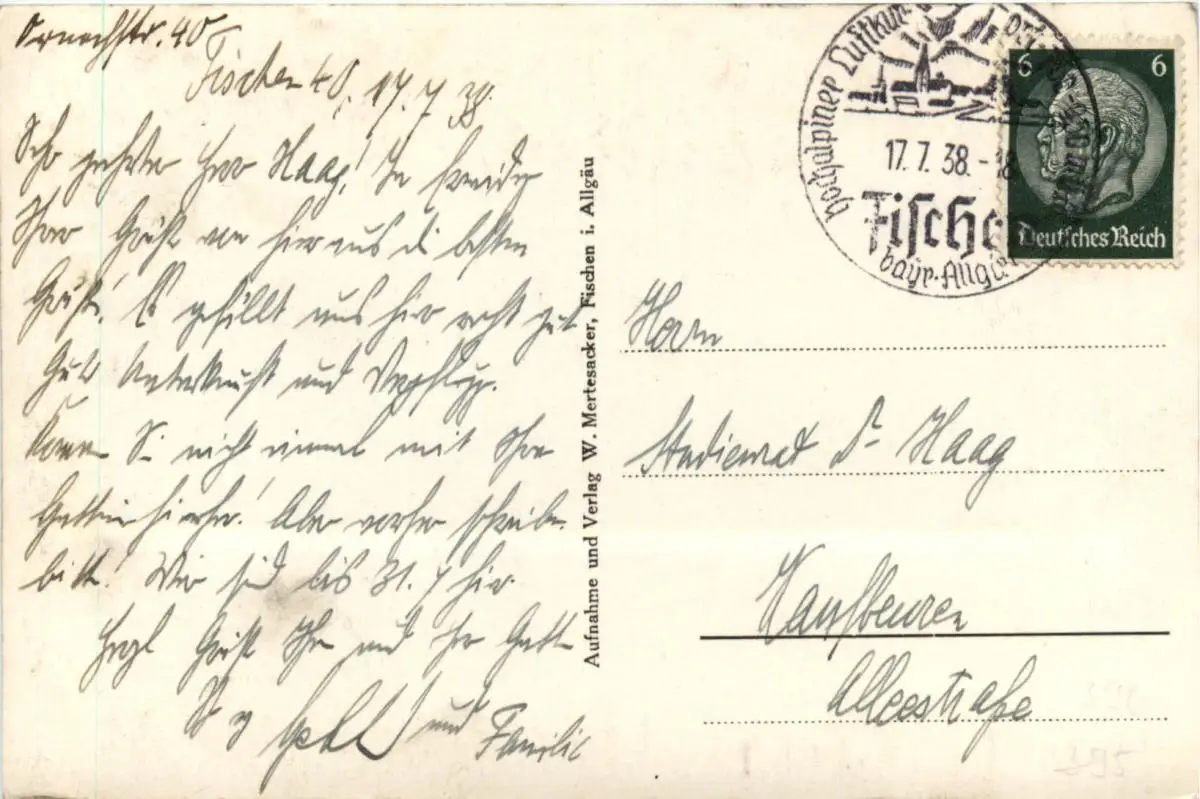 Fischen 40, 17.7.38.
Sehr geehrter Herr Haag! In Freude
Ihrer Grüße von hier aus die besten
Grüße! Es gefällt uns hier recht gut
Gute Unterkunft und Verpflegg.
Kommen Sie nicht einmal mit Ihrer
Gattin hierher! Aber vorher schreiben
bitte! Wir sind bis 31.7 hier.
Herzl Grüße Ihnen und Ihrer Gattin
und Familie
Aufnahme und Verlag W. Mertesacker, Fischen i. Allgäu
Hochalpiner Luftkurort
17.7.38.-18
Fischen
bayr. Allgäu
6 6
Deutsches Reich
Herrn
Studienrat Dr Haag
Kaufbeuren
Alleestraße
395